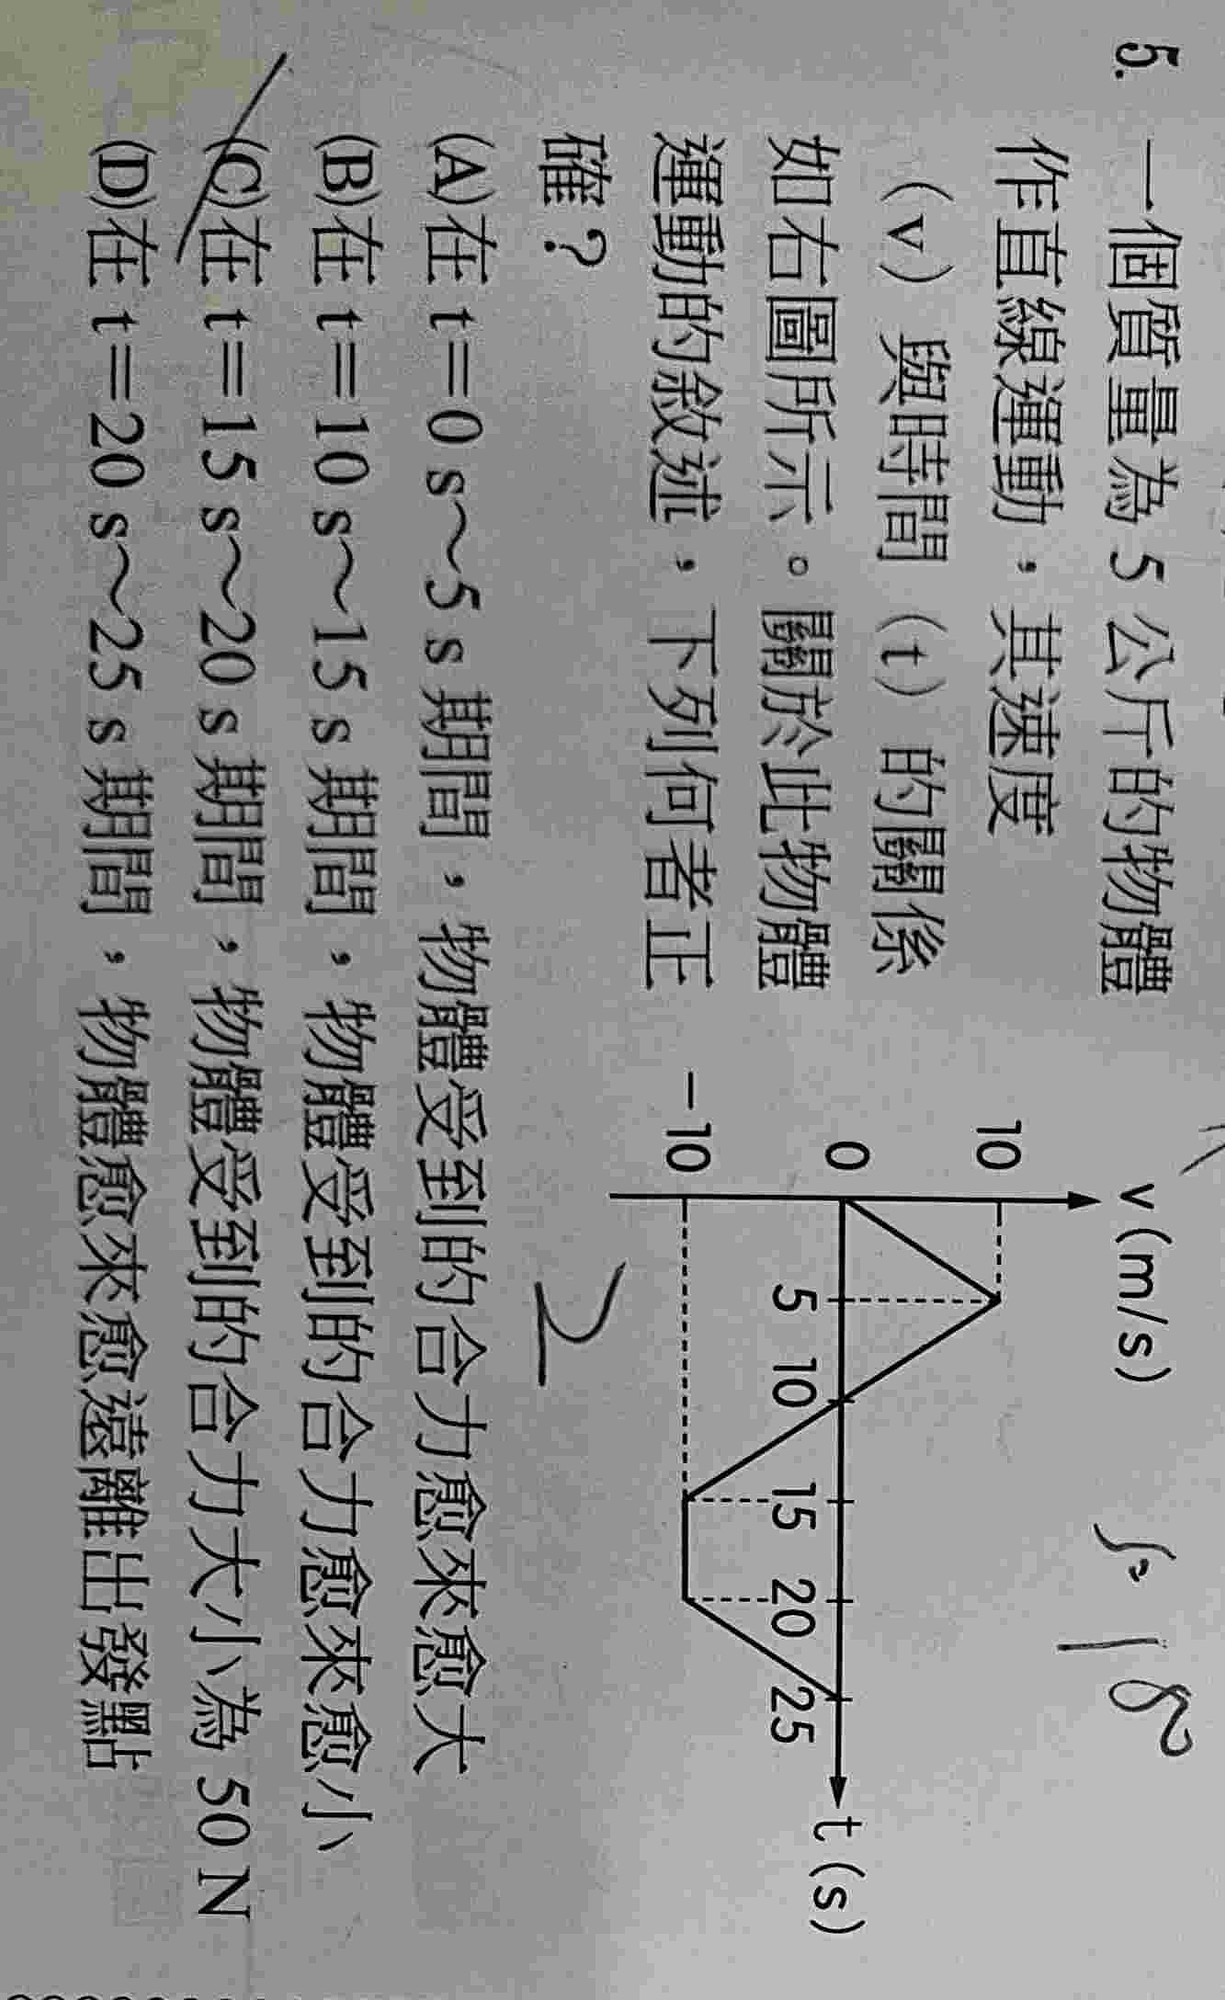 5. 一個質量為 5 公斤的物體
作直線運動，其速度
（v）與時間（t）的關係
如右圖所示。關於此物體
運動的敘述，下列何者正
確？
v(m/s)
10
0
-10
5 10 15 20 25
t(s)
(A)在 t＝0 s～5 s 期間，物體受到的合力愈來愈大
(B)在 t＝10 s～15 s 期間，物體受到的合力愈來愈小
(C)在 t＝15 s～20 s 期間，物體受到的合力大小為 50 N
(D)在 t＝20 s～25 s 期間，物體愈來愈遠離出發點